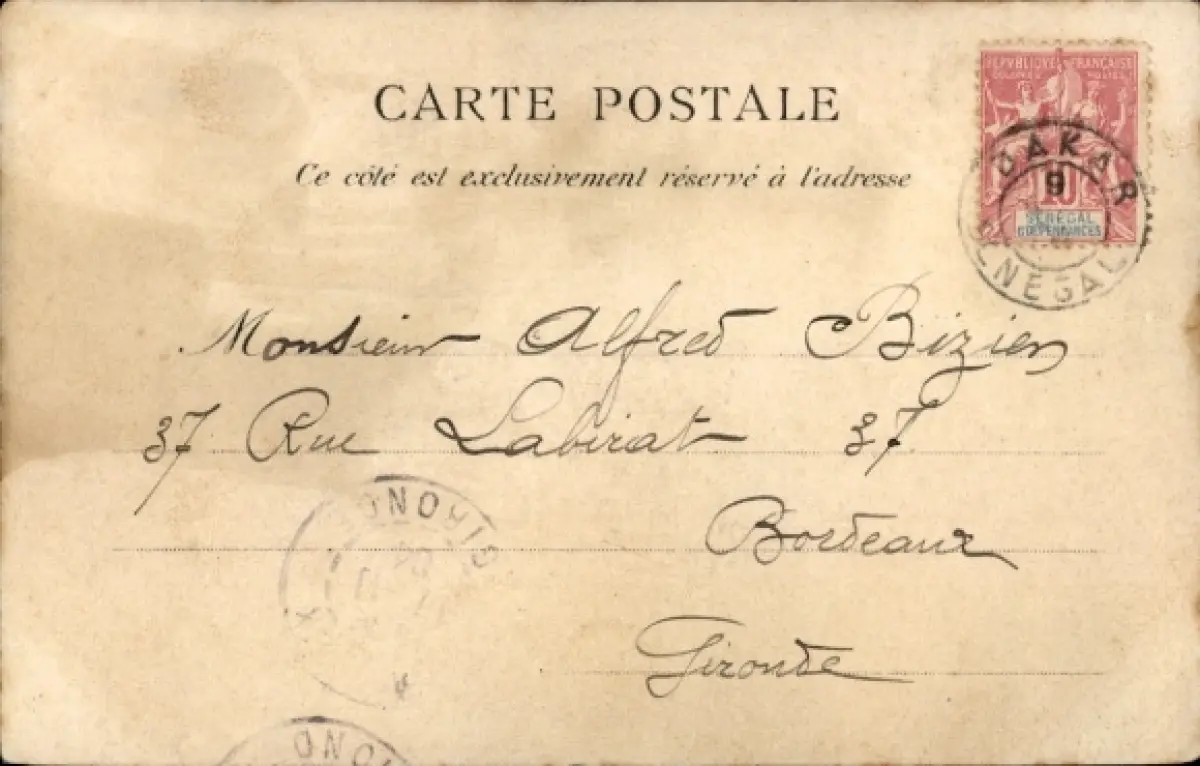 CARTE POSTALE
Ce côté est exclusivement réservé à l'adresse
REPVBLIQVE FRANÇAISE
COLONIES POSTES
10
SÉNÉGAL
ET DÉPENDANCES
DAKAR
9
SÉNÉGAL
Monsieur Alfred Bizien
37 Rue Labirat 37
Bordeaux
Gironde
GIRONDE